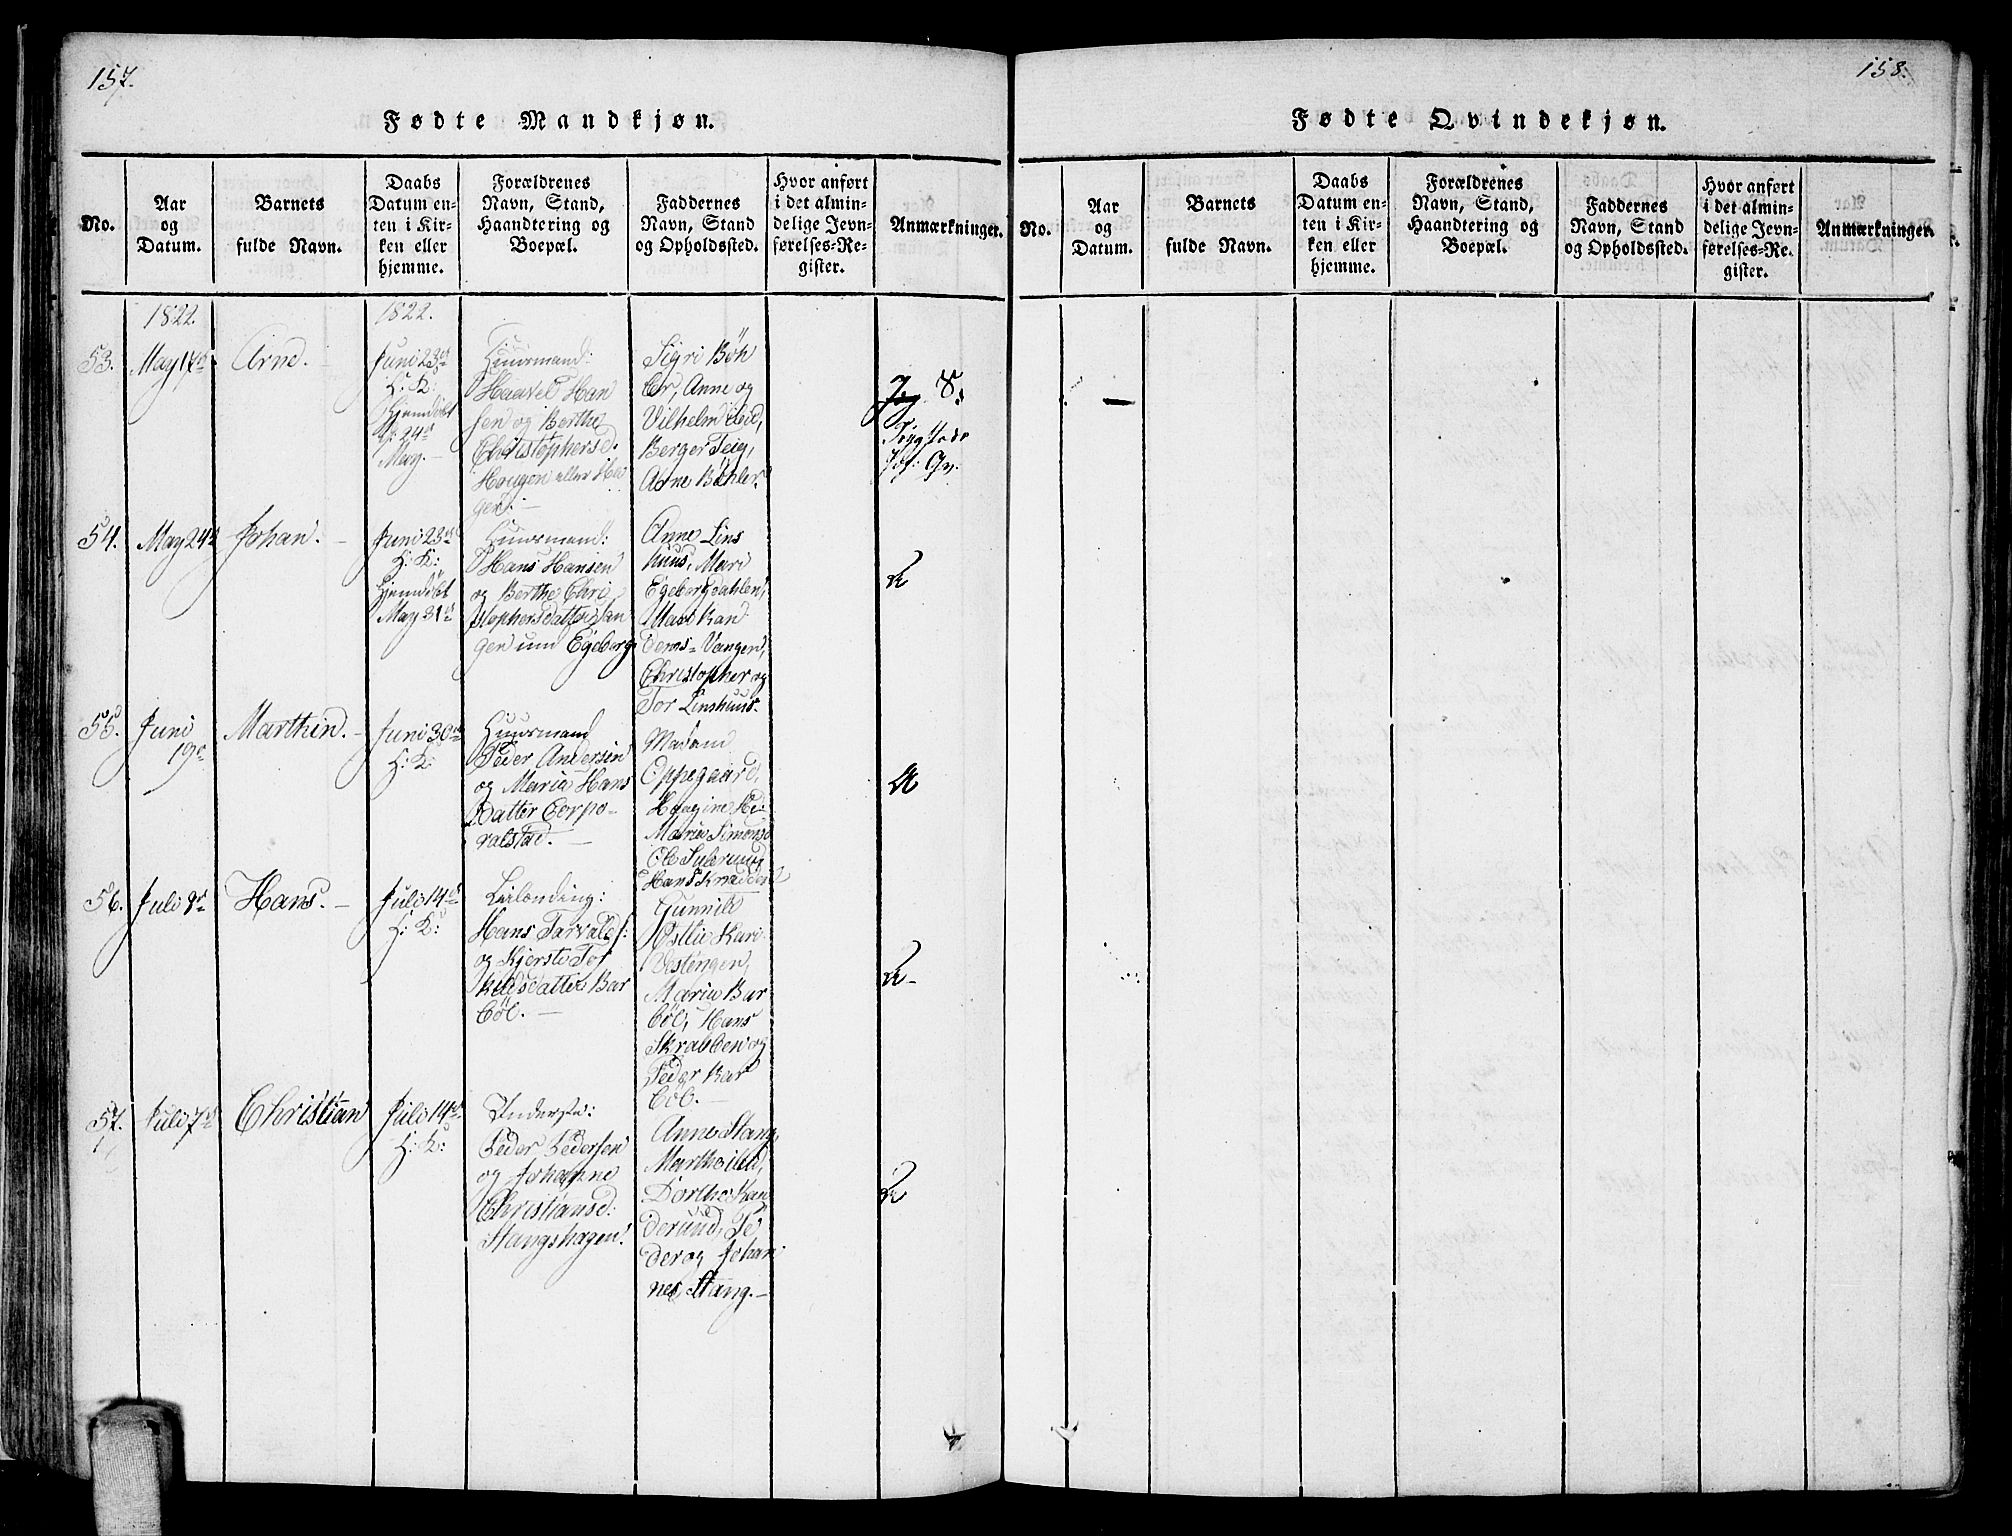 157.
Fødte Mandkjøn.
No.
Aar
og
Datum.
Barnets
fulde Navn.
Daabs
Datum en-
ten i Kir-
ken eller
hjemme.
Forældrenes
Navn, Stand,
Haandtering og
Boepæl.
Faddernes
Navn, Stand
og Opholdssted.
Hvor anført
i det almin-
delige Jevn-
førelses-Re-
gister.
Anmærkninger.
1822.
1822.
53.
May 17de
Arne.
Juni 23de
H: K:
Hjemdøbt
24de
May.
Huusmand:
Haavel Han
sen og Berthe
Christophersd.
Hougen eller Ha
gen.
Sigri Bøh
ler, Anne og
Vilhelm
Berger Teig,
Arne Bøhler.
54.
May 24de
Johan.
Juni 23de
H: K:
Hjemdøbt
May 31te
Huusmand:
Hans Hansen
og Berthe Chri
stophersdatter
gen um Egeberg
Anne Lins
huus, Mari
Egebergdahlen,
Mari Ran
dems-Vangen,
Christopher og
Tor Linshuus.
55.
Juni
19de
Marthin.
Juni 30te
H: K:
Huusmand
Peder Andersen
og Maria Hans
datter Corpo-
ralstad.
Madam
Oppegaard,
Maria Simonsd
Ole
Hans
56.
Juli 8de
Hans.
Juli 14de
H: K:
Leilending:
Hans Torvalds:
og Kjersti Tor
kildsdatter Bar
bøl.
Gunnild
Østlie Kari
Vestengen,
Maria Bar
bøl, Hans
Skrabben og
Peder Bar
bøl.
57.
Juli 7de
Christian
Juli 14de
H: K:
Inderste:
Peder Pedersen
og Johanne
Christiansd:
Stangshagen.
Anne Stang,
Marthe
Dorthe Ran
derund, Pe
der og Johan
nes Stang.
158.
Fødte Qvindekjøn.
No.
Aar
og
Datum.
Barnets
fulde Navn.
Daabs
Datum en-
ten i Kir-
ken eller
hjemme.
Forældrenes
Navn, Stand,
Haandtering og
Boepæl.
Faddernes
Navn, Stand
og Opholdssted.
Hvor anført
i det almin-
delige Jevn-
førelses-Re-
gister.
Anmærkninger.